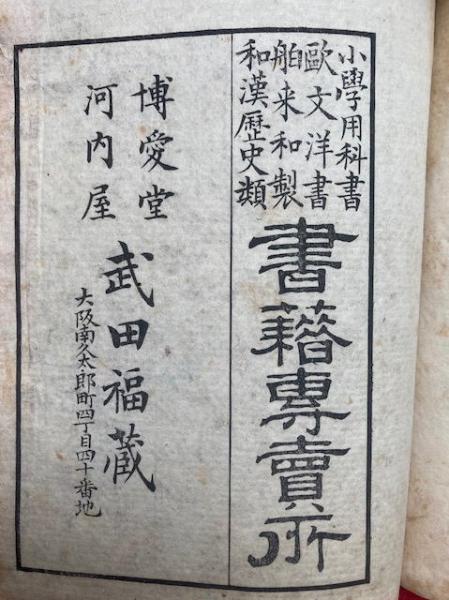 小學用科書
歐文洋書
舶来和製
和漢歷史類
書籍專賣所
博愛堂
河内屋
武田福蔵
大阪南久太郎町四丁目四十番地